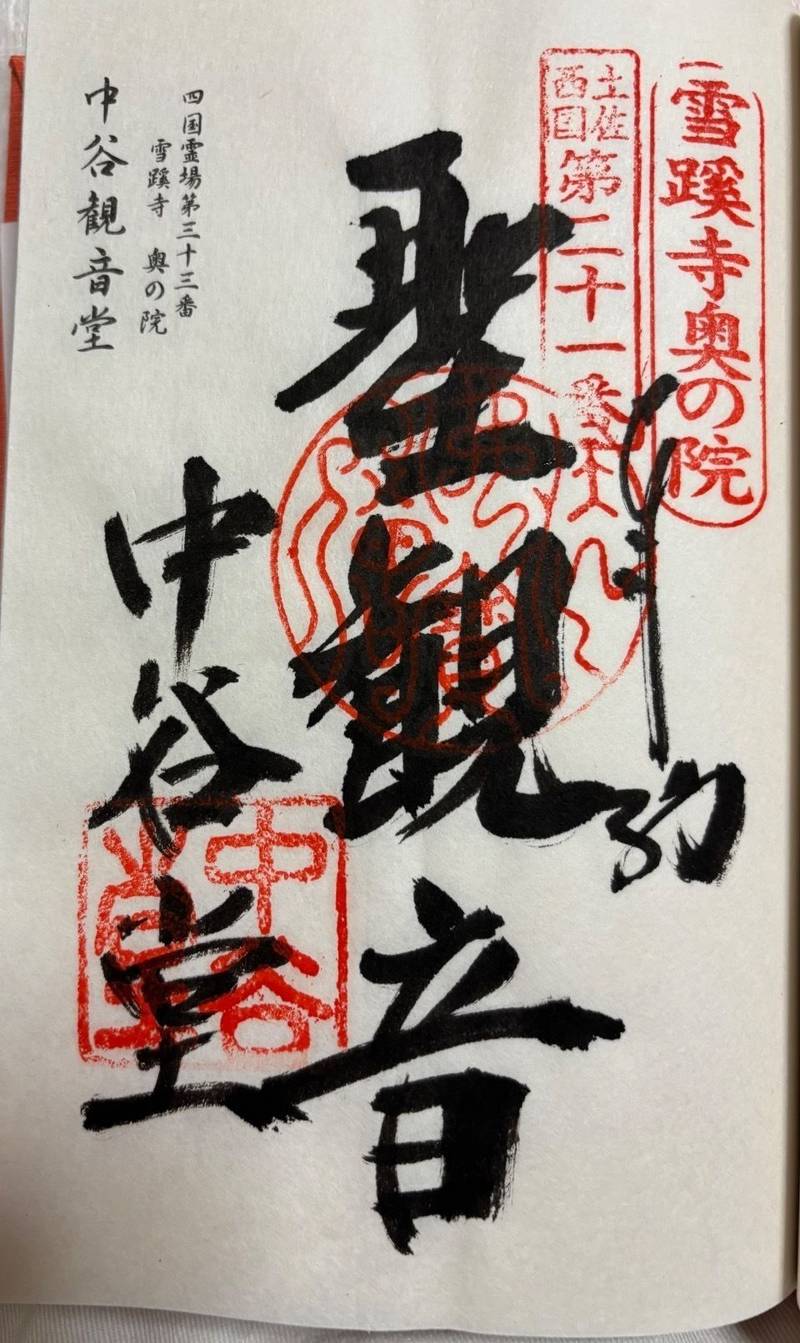 雪蹊寺奥の院
土佐
西国
第二十一番
聖観音
中谷堂
中谷
堂
四国霊場第三十三番
雪蹊寺 奥の院
中谷観音堂